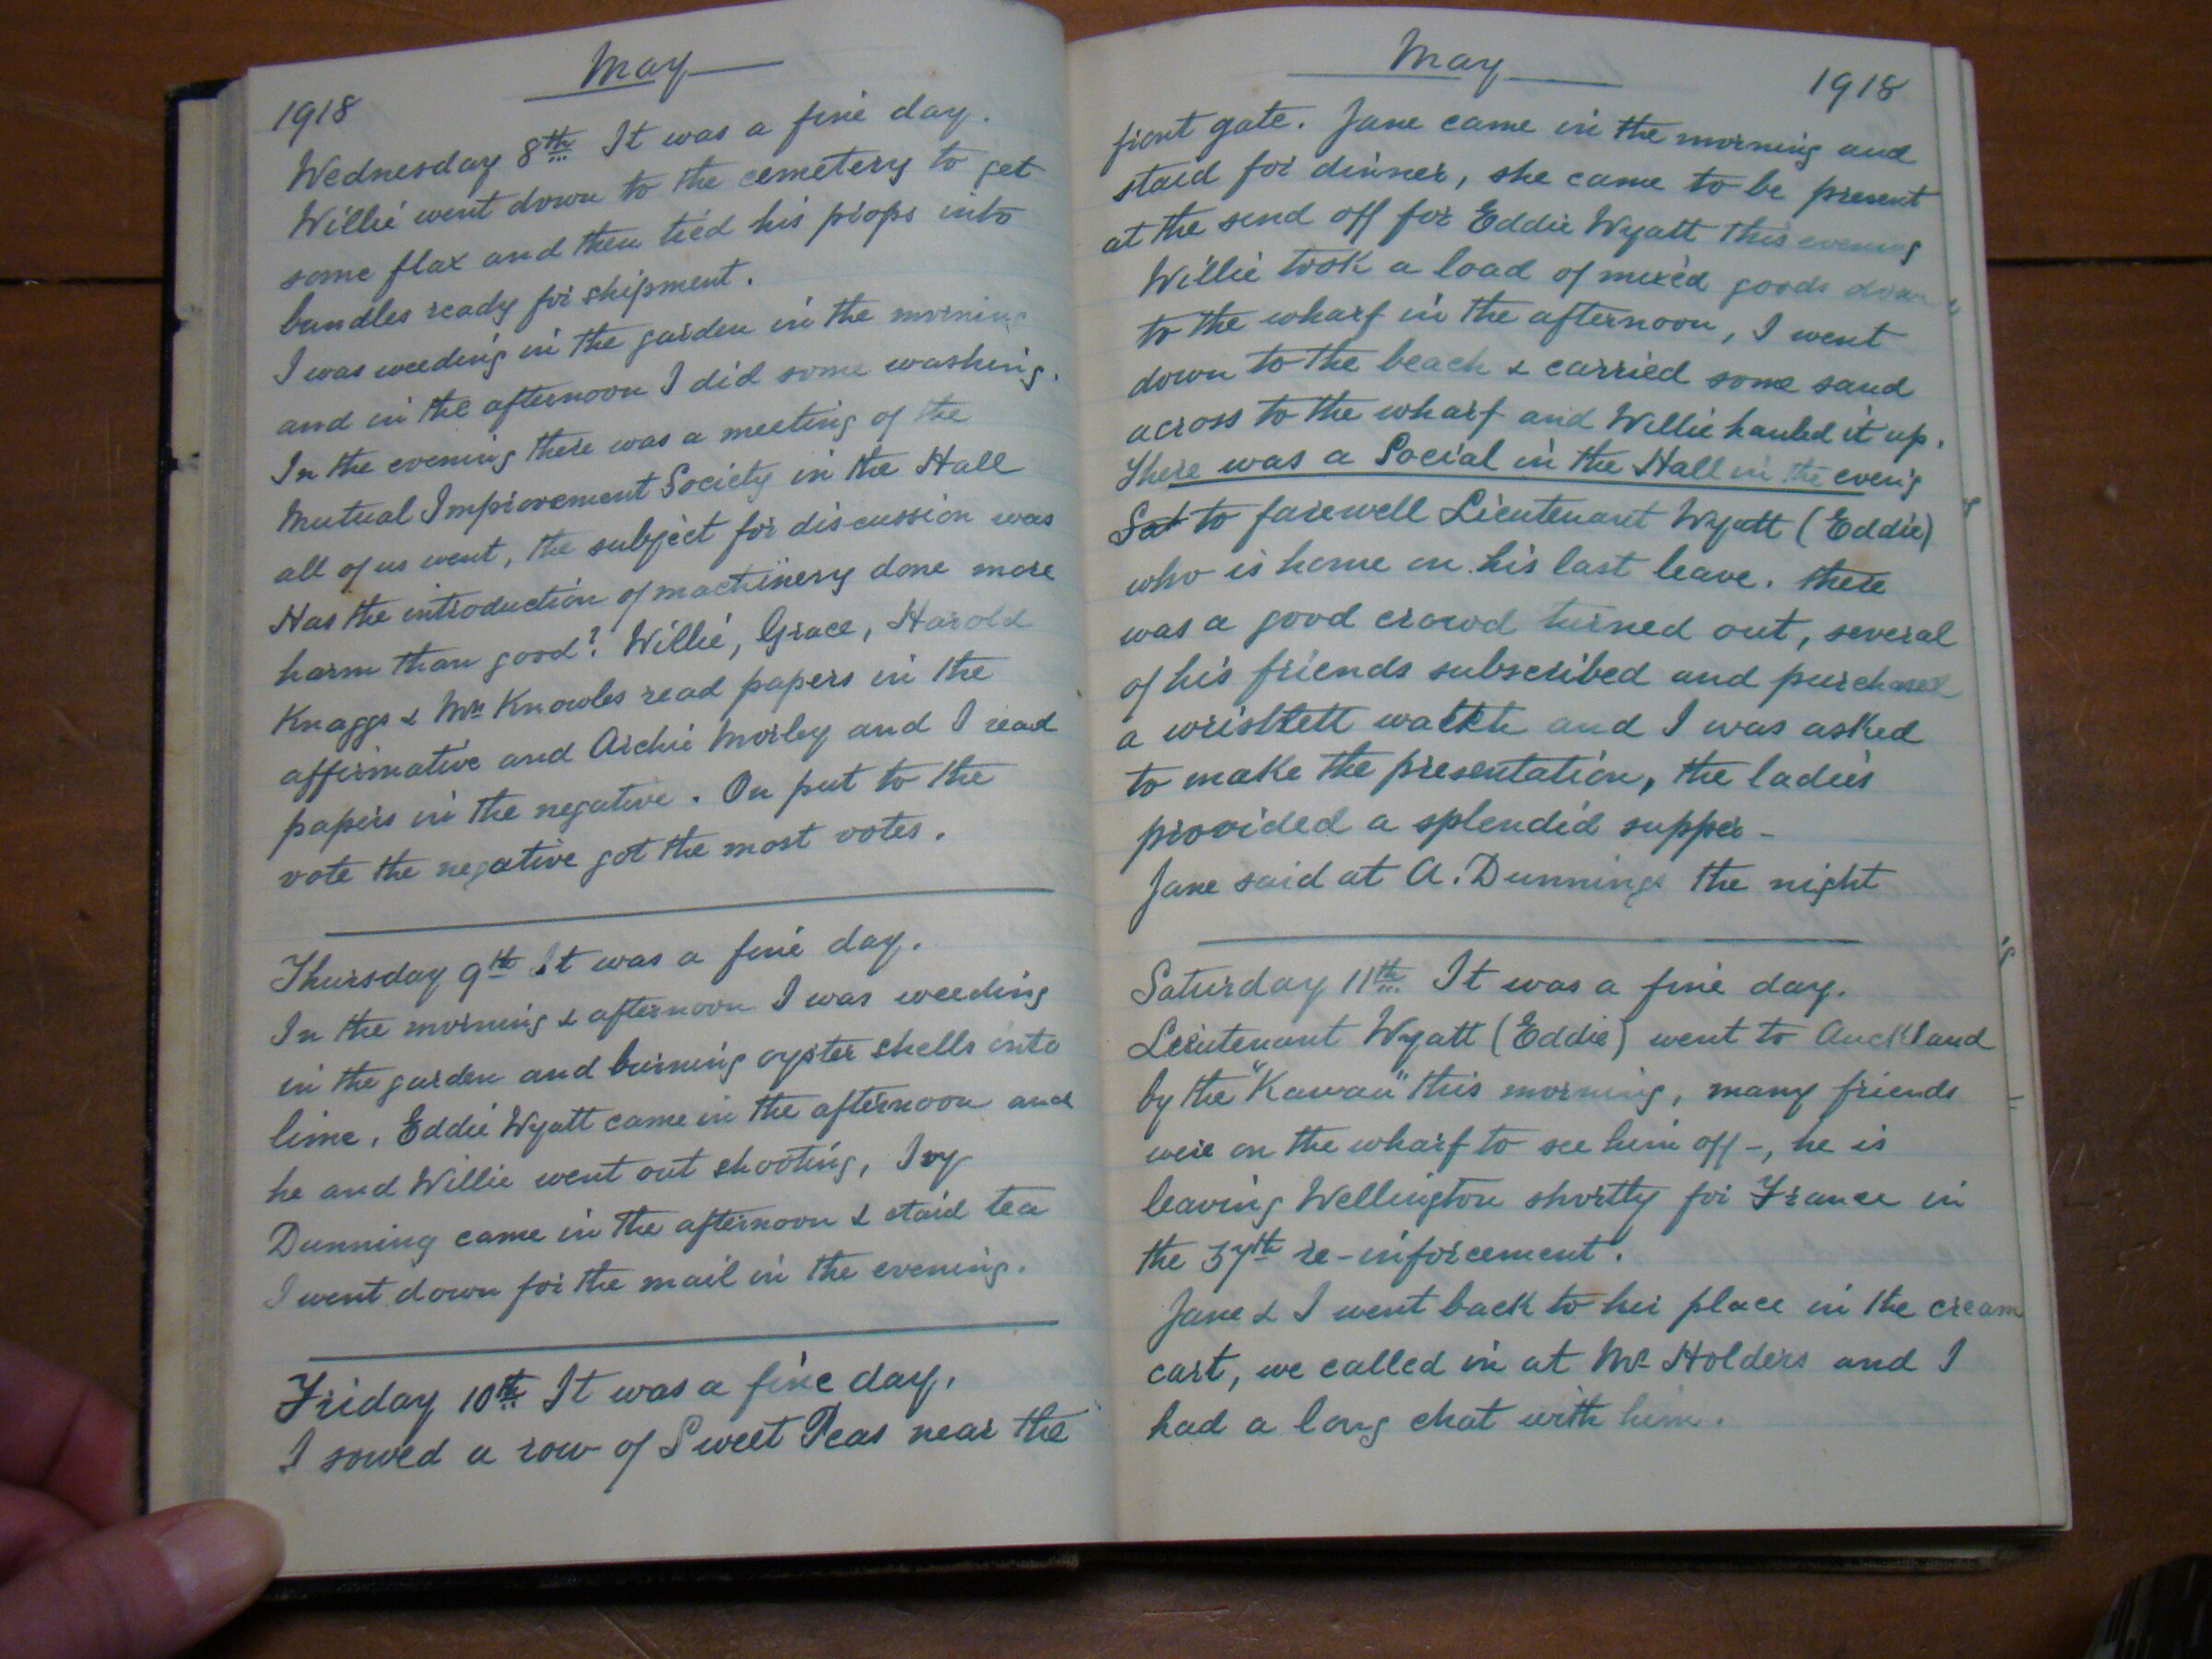 May
1918
Wednesday 8th It was a fine day.
Willie went down to the cemetery to get
some flax and then tied his props into
bundles ready for shipment.
I was weeding in the garden in the morning
and in the afternoon I did some washing.
In the evening there was a meeting of the
Mutual Improvement Society in the Hall
all of us went, the subject for discussion was
Has the introduction of machinery done more
harm than good? Willie, Grace, Harold
Knaggs & Mrs Knowles read papers in the
affirmative and Archie Morley and I read
papers in the negative. On put to the
vote the negative got the most votes.
Thursday 9th It was a fine day.
In the morning & afternoon I was weeding
in the garden and burning oyster shells into
lime. Eddie Wyatt came in the afternoon and
he and Willie went out shooting, Ivy
Dunning came in the afternoon & staid tea
I went down for the mail in the evening.
Friday 10th It was a fine day.
I sowed a row of Sweet Peas near the
May
1918
front gate. Jane came in the morning and
staid for dinner, she came to be present
at the send off for Eddie Wyatt this evening
Willie took a load of mixed goods down
to the wharf in the afternoon, I went
down to the beach & carried some sand
across to the wharf and Willie hauled it up.
There was a Social in the Hall in the evenig
Sat to farewell Lieutenant Wyatt (Eddie)
who is home on his last leave. there
was a good crowd turned out, several
of his friends subscribed and purchased
a wristlett watch and I was asked
to make the presentation, the ladies
provided a splendid supper -
Jane said at A. Dunnings the night
Saturday 11th It was a fine day.
Leiutenant Wyatt (Eddie) went to Auckland
by the "Kawau" this morning, many friends
were on the wharf to see him off -, he is
leaving Wellington shortly for France in
the 37th re-inforcement.
Jane & I went back to her place in the cream
cart, we called in at Mr Holders and I
had a long chat with him.